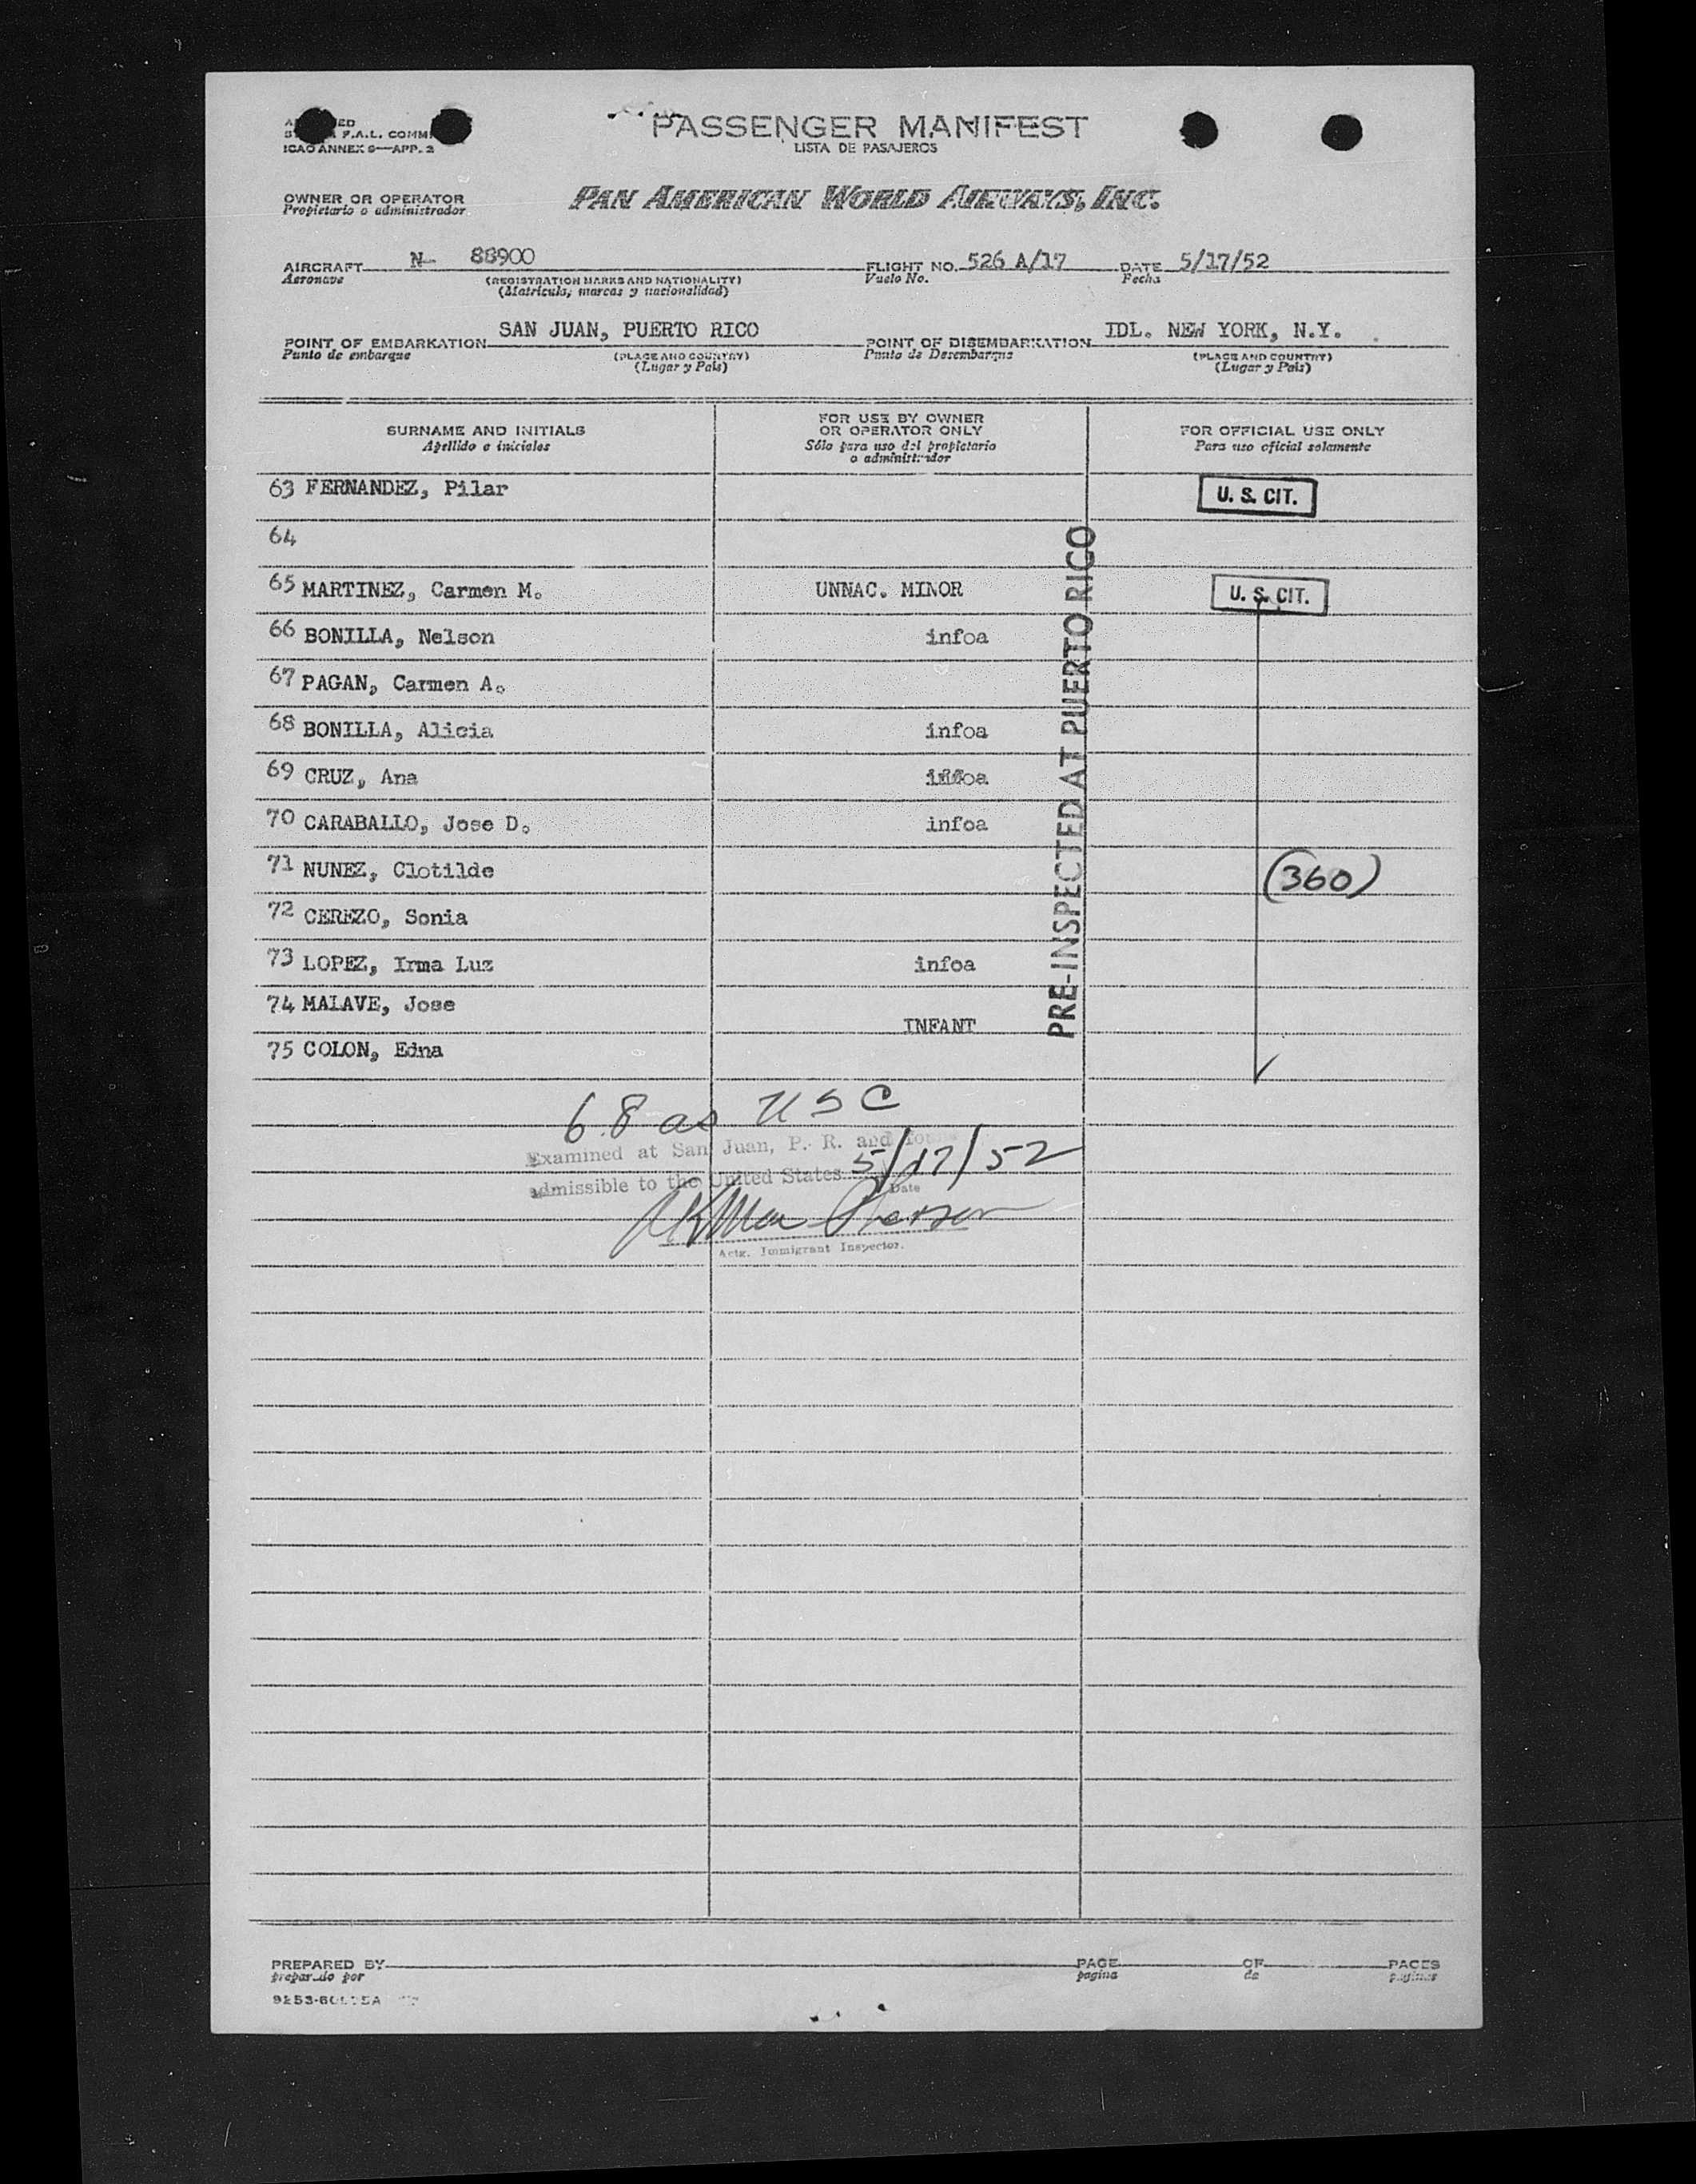 PASSENGER MANIFEST
LISTA DE PASAJEROS
F.A.L. COMM
ICAO ANNEX 9—APP. 2
OWNER OR OPERATOR
Propietario o administrador
PAN AMERICAN WORLD AIRWAYS, INC.
AIRCRAFT N- 88900 FLIGHT NO. 526 A/17 DATE 5/17/52
Aeronave (REGISTRATION MARKS AND NATIONALITY) Vuelo No. Fecha
(Matricula, marcas y nacionalidad)
POINT OF EMBARKATION SAN JUAN, PUERTO RICO POINT OF DISEMBARKATION IDL. NEW YORK, N.Y.
Punto de embarque (PLACE AND COUNTRY) Punto de Desembarque (PLACE AND COUNTRY)
(Lugar y País) (Lugar y País)
SURNAME AND INITIALS FOR USE BY OWNER OR OPERATOR ONLY FOR OFFICIAL USE ONLY
Apellido e iniciales Sólo para uso del propietario o administrador Para uso oficial solamente
63 FERNANDEZ, Pilar U. S. CIT.
64
65 MARTINEZ, Carmen M. UNNAC. MINOR U. S. CIT.
66 BONILLA, Nelson infoa
67 PAGAN, Carmen A.
68 BONILLA, Alicia infoa
69 CRUZ, Ana infoa
70 CARABALLO, Jose D. infoa
71 NUNEZ, Clotilde (360)
72 CEREZO, Sonia
73 LOPEZ, Irma Luz infoa
74 MALAVE, Jose
INFANT
75 COLON, Edna
PRE-INSPECTED AT PUERTO RICO
68 as USC
Examined at San Juan, P. R. and
admissible to the United States 5/17/52
Date
Actg. Immigrant Inspector.
PREPARED BY PAGE OF PAGES
preparado por pagina de paginas